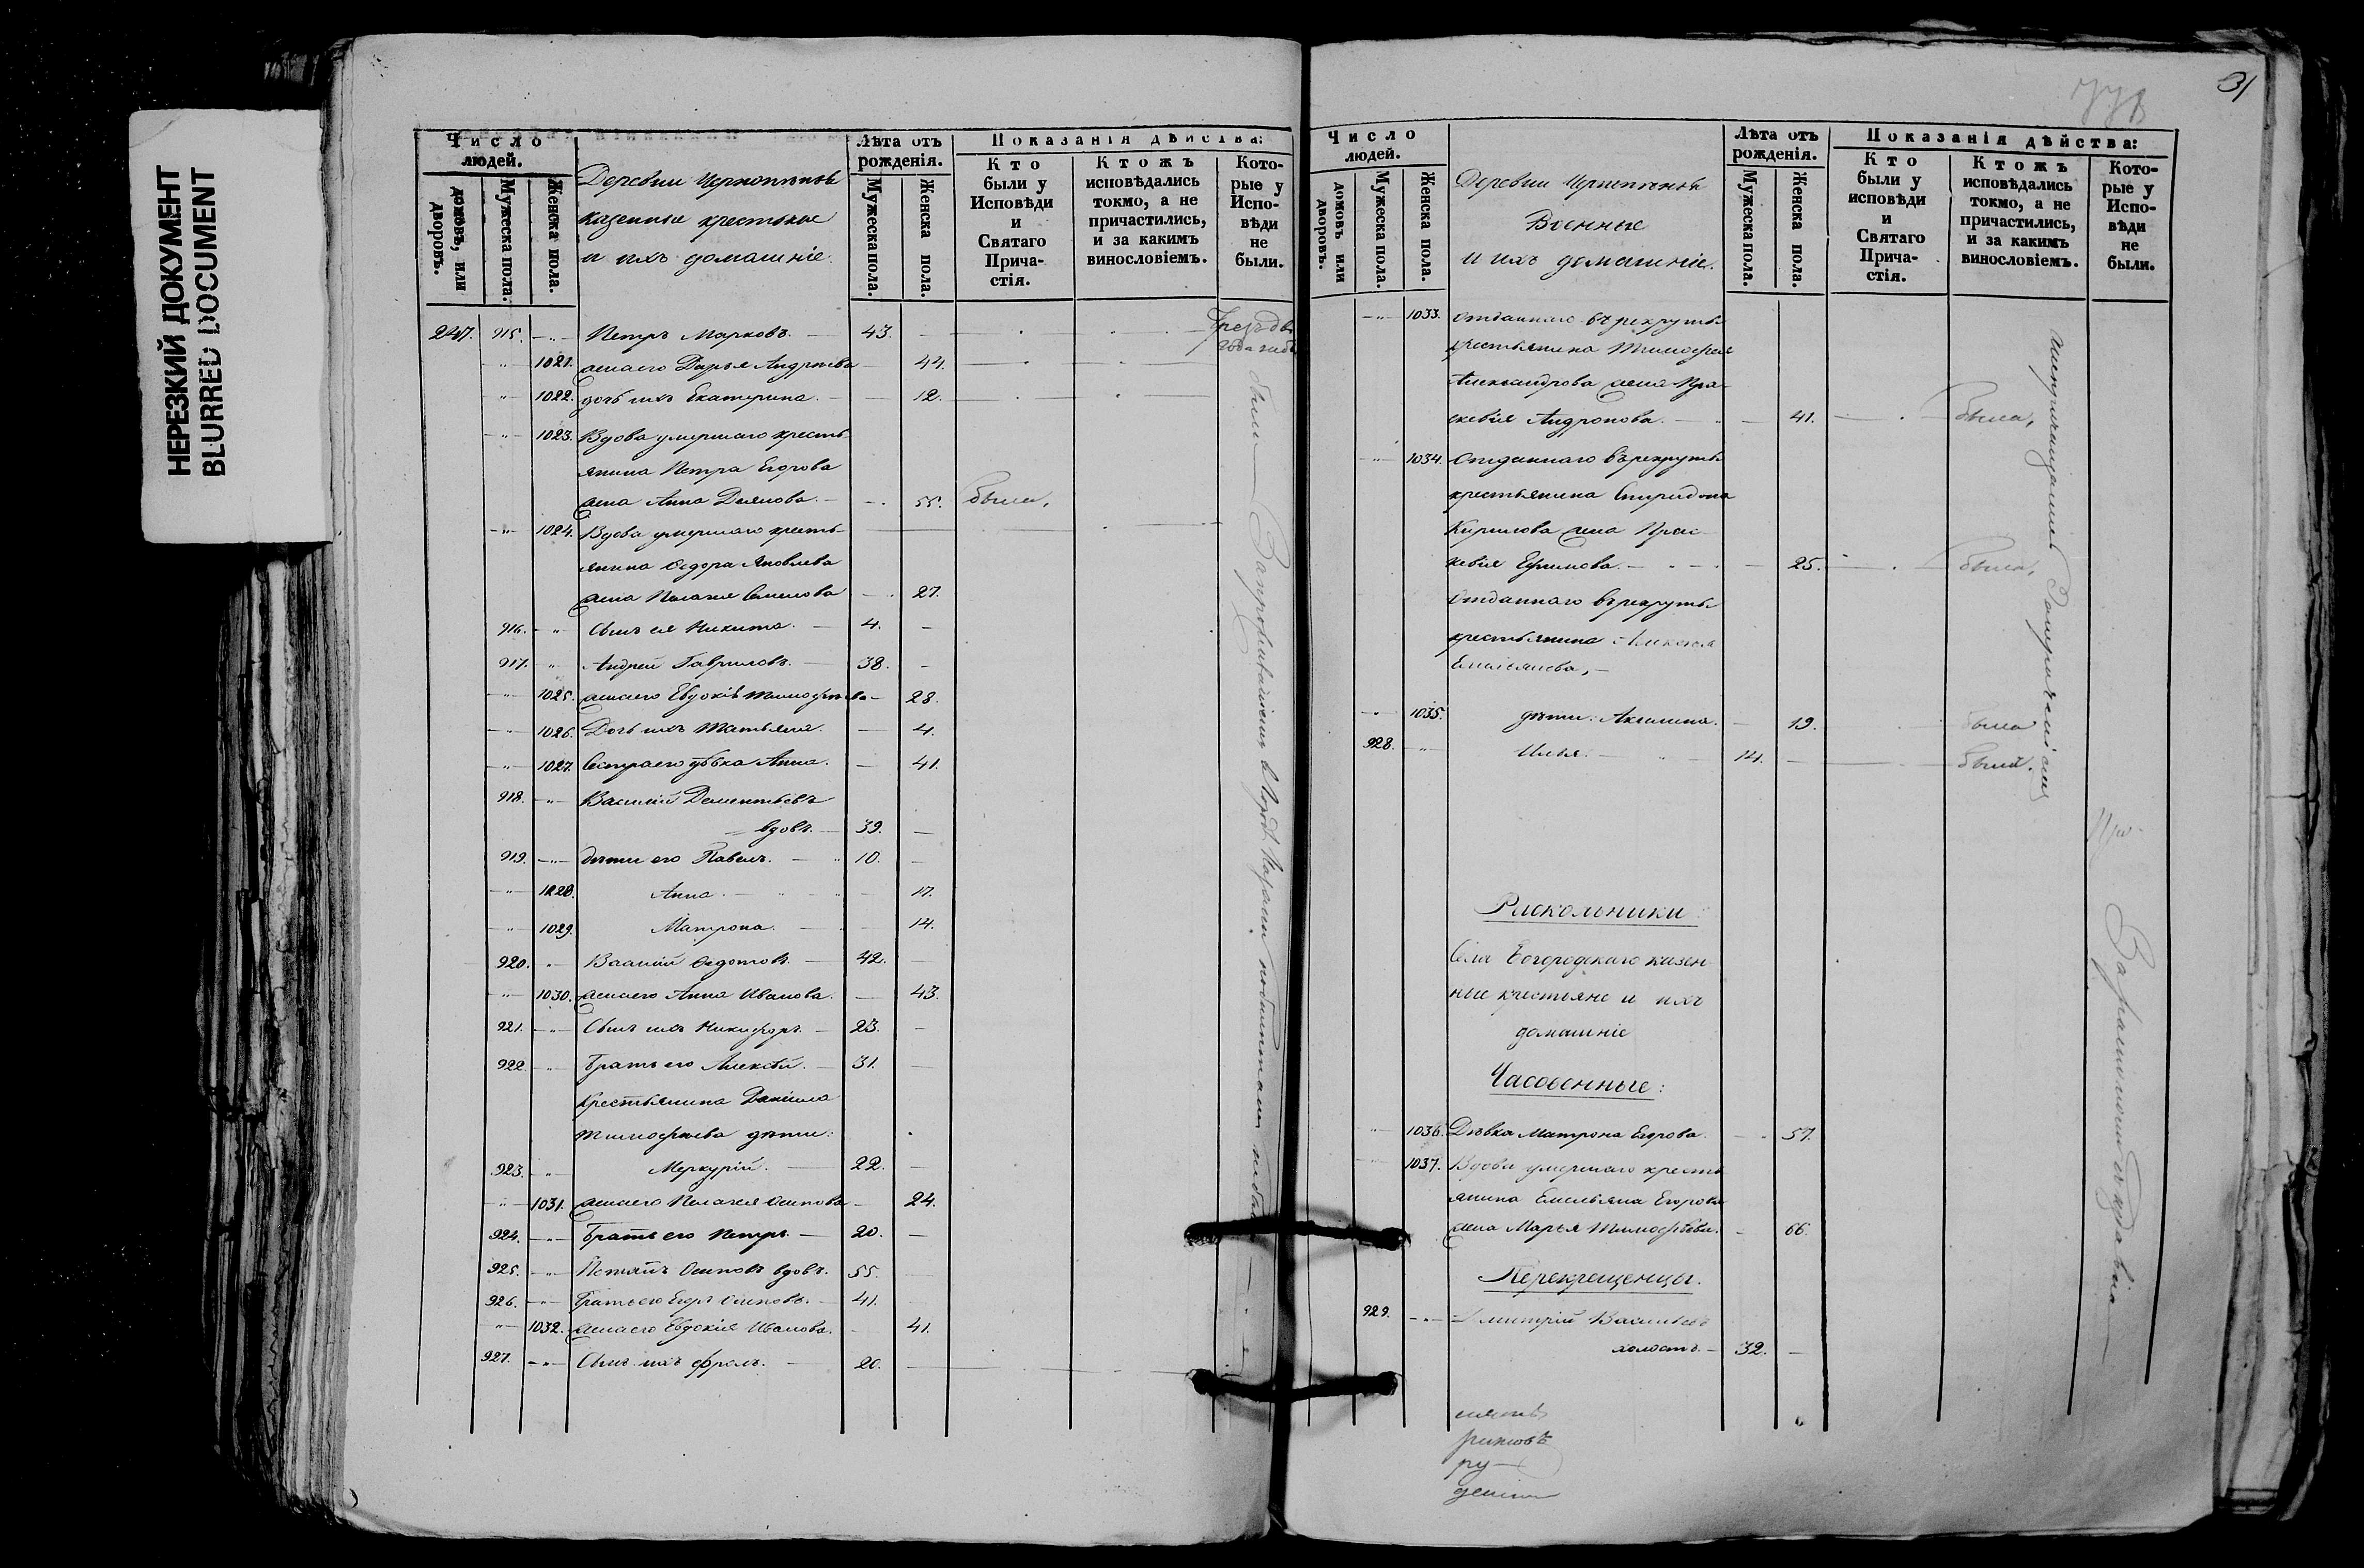 НЕРЕЗКИЙ ДОКУМЕНТ
BLURRED DOCUMENT
Число людей.
домовъ, или дворовъ.
Мужеска пола.
Женска пола.
Деревни
казенные крестьяне
и ихъ домашніе.
Лѣта отъ рожденія.
Мужеска пола.
Женска пола.
Показанія дѣйства:
Кто были у Исповѣди и Святаго Причастія.
Ктожъ исповѣдались токмо, а не причастились, и за какимъ винословіемъ.
Которые у Исповѣди не были.
247. 915. -"- Петръ Марковъ. — 43. —
-"- 1021. жена его Дарья Андреева — 44.
-"- 1022. дочь ихъ Екатерина. — 12.
-"- 1023. Вдова умершаго кресть-
янина Петра Егорова
жена Анна Демова. — 55. была,
-"- 1024. Вдова умершаго кресть-
янина Ѳедора Яковлева
жена Пелагея Семенова — 27.
916. -"- Сынъ ея Никита. — 4. —
917. -"- Андрей Гавриловъ. — 38. —
-"- 1025. жена его Евдокія Тимофѣева — 28.
-"- 1026. Дочь ихъ Татьяна. — 4.
-"- 1027. Сестра его дѣвка Анна. — 41.
918. -"- Василій Дементьевъ
вдовъ. — 39. —
919. -"- дѣти его Павелъ. — 10. —
-"- 1028. Анна. — 17.
-"- 1029. Матрона. — 14.
920. -"- Василій Ѳедотовъ. — 42. —
-"- 1030. жена его Анна Иванова. — 43.
921. -"- Сынъ ихъ Никифоръ. — 23. —
922. -"- Братъ его Алексѣй. — 31. —
Крестьянина Даніила
Тимофѣева дѣти:
923. -"- Меркурій. — 22. —
-"- 1031. жена его Пелагея Осипова — 24.
924. -"- Братъ его Петръ. — 20. —
925. -"- Осиповъ вдовъ. 55. —
926. -"- Братъ его Егоръ Осиповъ. — 41. —
-"- 1032. жена его Евдокія Иванова. — 41.
927. -"- Сынъ ихъ Фролъ. — 20. —
31
Число людей.
домовъ или дворовъ.
Мужеска пола.
Женска пола.
Деревни
Военные
и ихъ домашніе.
Лѣта отъ рожденія.
Мужеска пола.
Женска пола.
Показанія дѣйства:
Кто были у исповѣди и Святаго Причастія.
Ктожъ исповѣдались токмо, а не причастились, и за какимъ винословіемъ.
Которые у Исповѣди не были.
-"- 1033. Отданнаго въ рекруты
крестьянина Тимофея
Александрова жена Пра-
сковія Андронова. — 41. была,
-"- 1034. Отданнаго въ рекруты
крестьянина Спиридона
Кирилова жена Прас-
ковія Ефимова. — 25. была,
Отданнаго въ рекруты
крестьянина Алексея
Емельянова, —
-"- 1035. дѣти: Акилина. — 19. была
928. -"- Илья. — 14. — былъ.
Раскольники:
Села Богородскаго казен-
ные крестьяне и ихъ
домашніе
Часовенные:
-"- 1036. Дѣвка Матрона Егорова. — 57.
-"- 1037. Вдова умершаго кресть
янина Емельяна Егорова
жена Марья Тимофѣева. — 66.
Перекрещенцы.
929. -"- Дмитрій Васильевъ
холостъ. — 32. —